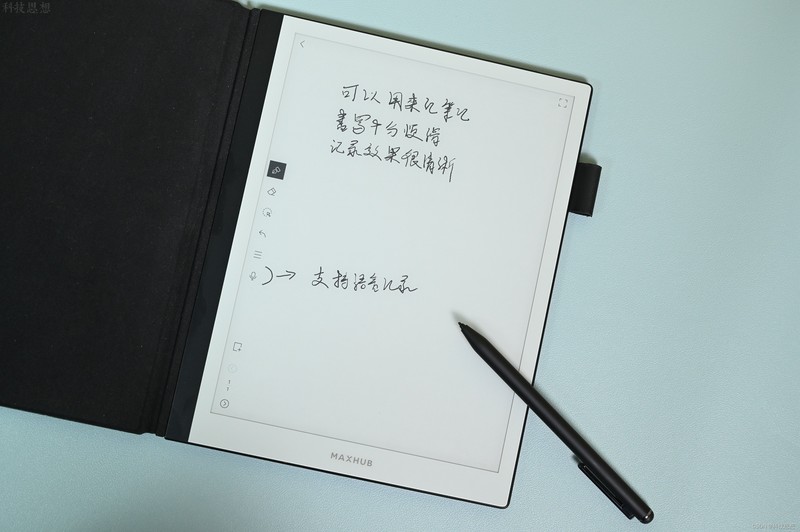 科技思想
可以用来记笔记
书写十分
记录效果很清晰
支持语音记录
MAXHUB